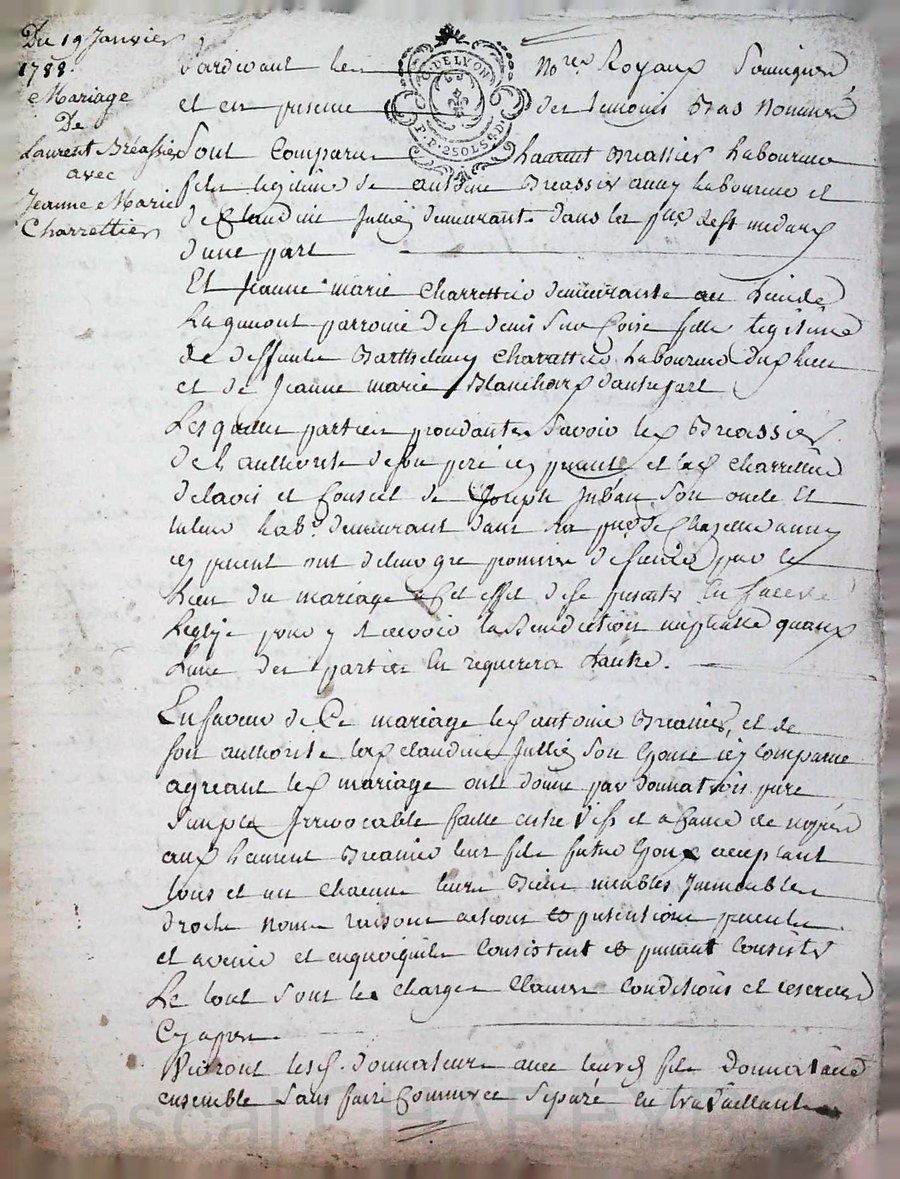 Du 19 Janvier
1788.
Mariage
De
Laurent Bréassier
avec
Jeanne Marie
Charrettier
G. DE LYON
P.P. 250LS&D.
Pardevant les No.res Royaux Soussignés
et en presence des temoins Bas nommés
Sont Comparus Laurent Breassier Laboureur
fils legitime de antoine Breassier aussy Laboureur et
de Claudine Jullien demeurants dans la p.sse de st medard
d'une part
Et Jeanne marie Charrettier demeurante au Lieu de
parroisse de st denis Sur Coise fille legitime
de deffunt Barthelemy Charrettier Laboureur du lieu
et de Jeanne marie Blanchard d'autre part
Lesquelles parties procedantes Savoir led Breassier
de L'authorité de son pere icy present et lad Charrettier
de lavis et Conseil de Joseph Jullien Son oncle Et
tuteur Lab.r demeurant dans La p.sse de Chazelle aussy
icy present ont de leur gré promis de s'unir par le
Lien du mariage a cet effet de se presenter En face de
Leglise pour y Recevoir la Benediction nuptialle quand
L'une des parties En requerera L'autre.
En faveur de Ce mariage led antoine Breassier, et de
son authorité lad Claudine Jullien Son Epouse icy Comparue
agréant led mariage ont donné par donnation pure
Simple Irrevocable faitte entre Vifs et a Cause de noces
aud Laurent Breassier leur fils futur Epoux acceptant
tous et un Chacun leurs Biens meubles Immeubles
droits noms raisons actions et pretentions presents
et avenir et en quoiquils Consistent et puissent Consister
Le tout Sous les Charges Clauses Conditions et reserves
Cy apres
Vivront lesd. donnateurs avec leurd fils donnataire
ensemble Sans faire Commerce Separé En travaillant
Pascal CHARETTIER